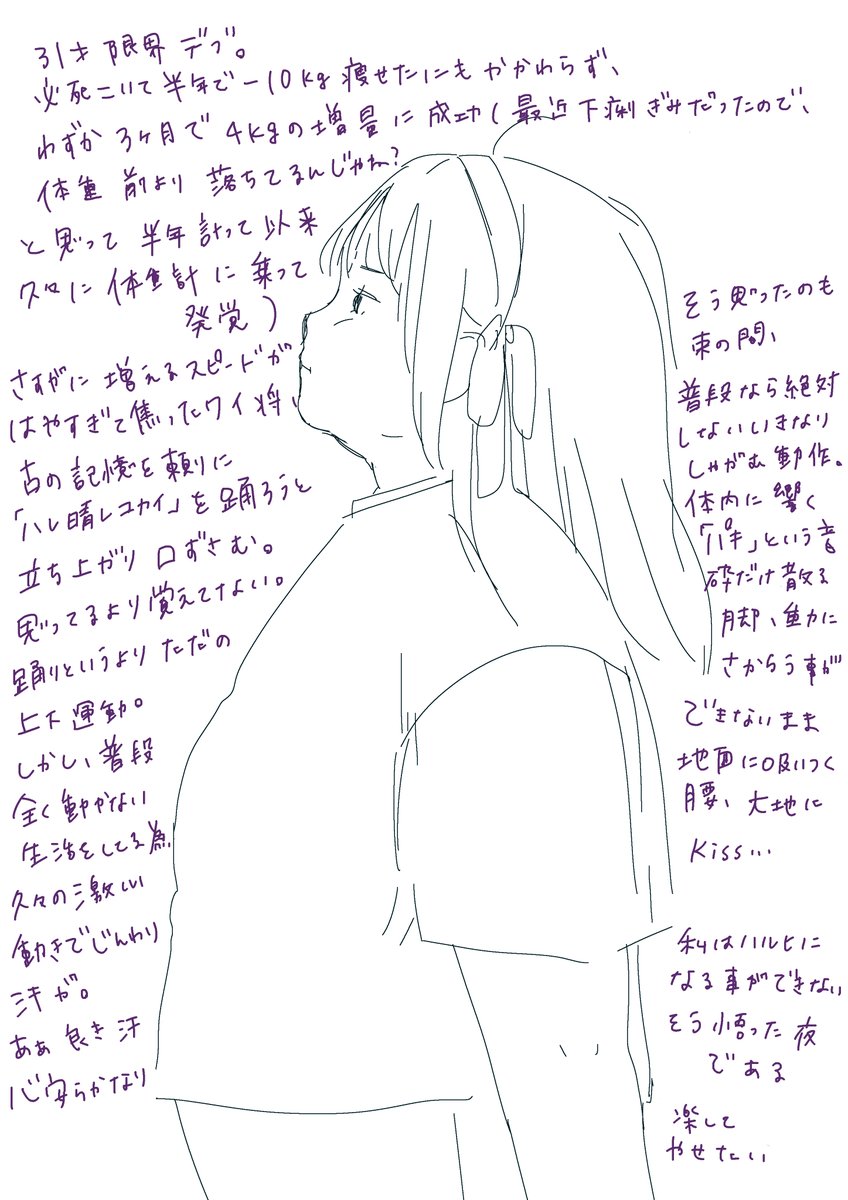 引き限界デブ。
必死こいて半年で−10kg痩せたにもかかわらず、
わずか3ヶ月で4kgの増量に成功(最近下痢ぎみだったので、
体重前より落ちてるんじゃね?
と思って半年計って以来
久々に体重計に乗って
発覚)
さすがに増えるスピードが
はやすぎて焦ったワイ将、
古の記憶を頼りに
「ハレ晴レユカイ」を踊ろうと
立ち上がり口ずさむ。
思ってるより覚えてない。
踊りというよりただの
上下運動。
しかし、普段
全く動かない
生活をしてる為、
久々の激しい
動きでじんわり
汗が。
あぁ良き汗
心安らかなり
そう思ったのも
束の間、
普段なら絶対
しないいきなり
しゃがむ動作。
体内に響く
「パキ」という音
砕だけ散る
脚、重力に
さからう事が
できないまま
地面に吸いつく
腰、大地に
Kiss...
私はハルヒに
なる事ができない
そう悟った夜
である
楽して
やせたい